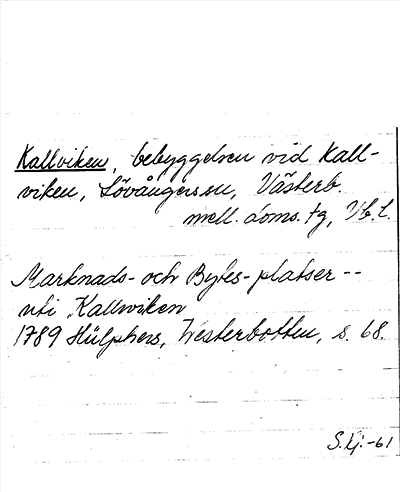 Kallviken, bebyggelsen vid Kall-
viken, Lövångers sn, Västerb.
mell. doms. tg, Vb. l.
Marknads- och Bytes-platser --
uti Kallwiken
1789 Hülphers, Westerbotten, s. 68.
S. Lj. -61